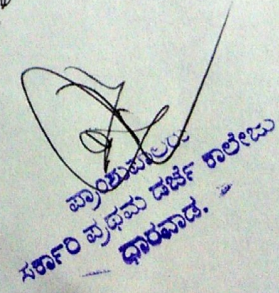 ಪ್ರಾಂಶುಪಾಲರು
ಸರ್ಕಾರಿ ಪ್ರಥಮ ದರ್ಜೆ ಕಾಲೇಜು
ಧಾರವಾಡ.